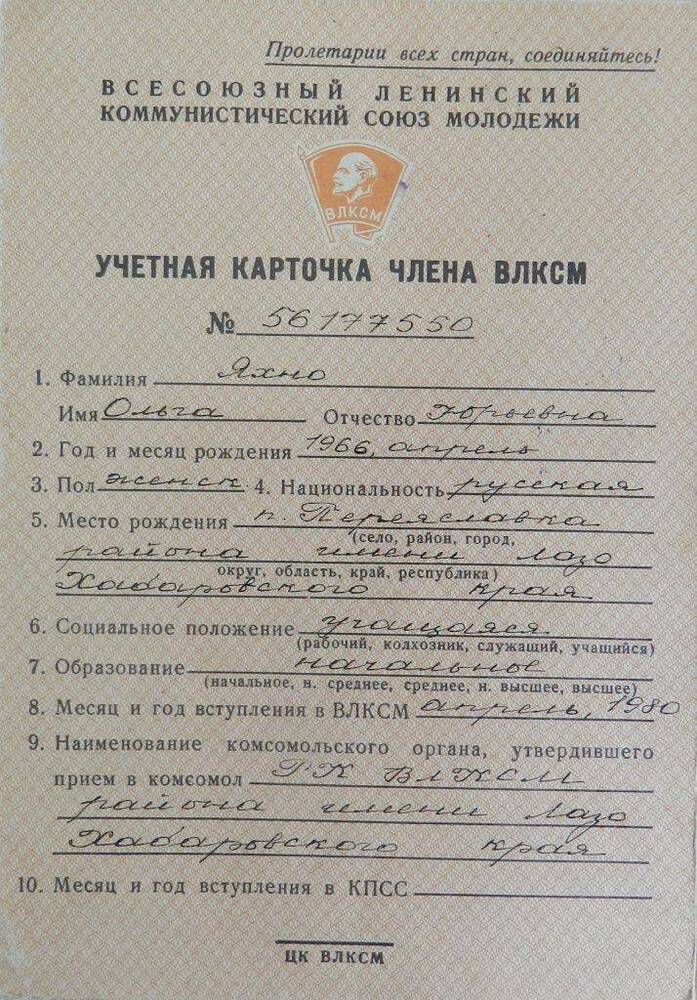 Пролетарии всех стран, соединяйтесь!
ВСЕСОЮЗНЫЙ ЛЕНИНСКИЙ
КОММУНИСТИЧЕСКИЙ СОЮЗ МОЛОДЕЖИ
ВЛКСМ
УЧЕТНАЯ КАРТОЧКА ЧЛЕНА ВЛКСМ
№ 56177550
1. Фамилия Яхно
Имя Ольга Отчество Юрьевна
2. Год и месяц рождения 1966, апрель
3. Пол женск. 4. Национальность русская
5. Место рождения п. Переяславка
(село, район, город,
района имени Лазо
округ, область, край, республика)
Хабаровского края
6. Социальное положение учащаяся
(рабочий, колхозник, служащий, учащийся)
7. Образование начальное
(начальное, н. среднее, среднее, н. высшее, высшее)
8. Месяц и год вступления в ВЛКСМ апрель, 1980
9. Наименование комсомольского органа, утвердившего
прием в комсомол РК ВЛКСМ
района имени Лазо
Хабаровского края
10. Месяц и год вступления в КПСС
ЦК ВЛКСМ